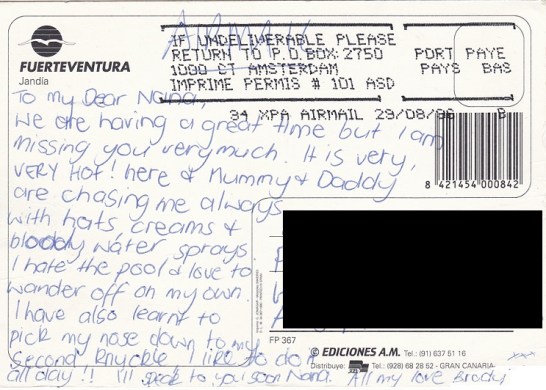 FUERTEVENTURA
Jandia
IF UNDELIVERABLE PLEASE
RETURN TO P.O.BOX: 2750
1000 CT AMSTERDAM
IMPRIME PERMIS # 101 ASD
PORT PAYE
PAYS BAS
34 XPA AIRMAIL 29/08/96 B
To my Dear Nana,
We are having a great time but I am
missing you very much. It is very,
VERY HOT! here & Mummy & Daddy
are chasing me always
with hats, creams &
bloody water sprays.
I hate the pool & love to
wander off on my own.
I have also learnt to
pick my nose down to my
second knuckle I like to do it
all day!! I'll speak to you soon Nana. All my love Brodi
xxx
8 421454 000842
FP 367
© EDICIONES A.M. Tel.: (91) 637 51 16
Distribuye: Tel.: (928) 68 28 52 - GRAN CANARIA